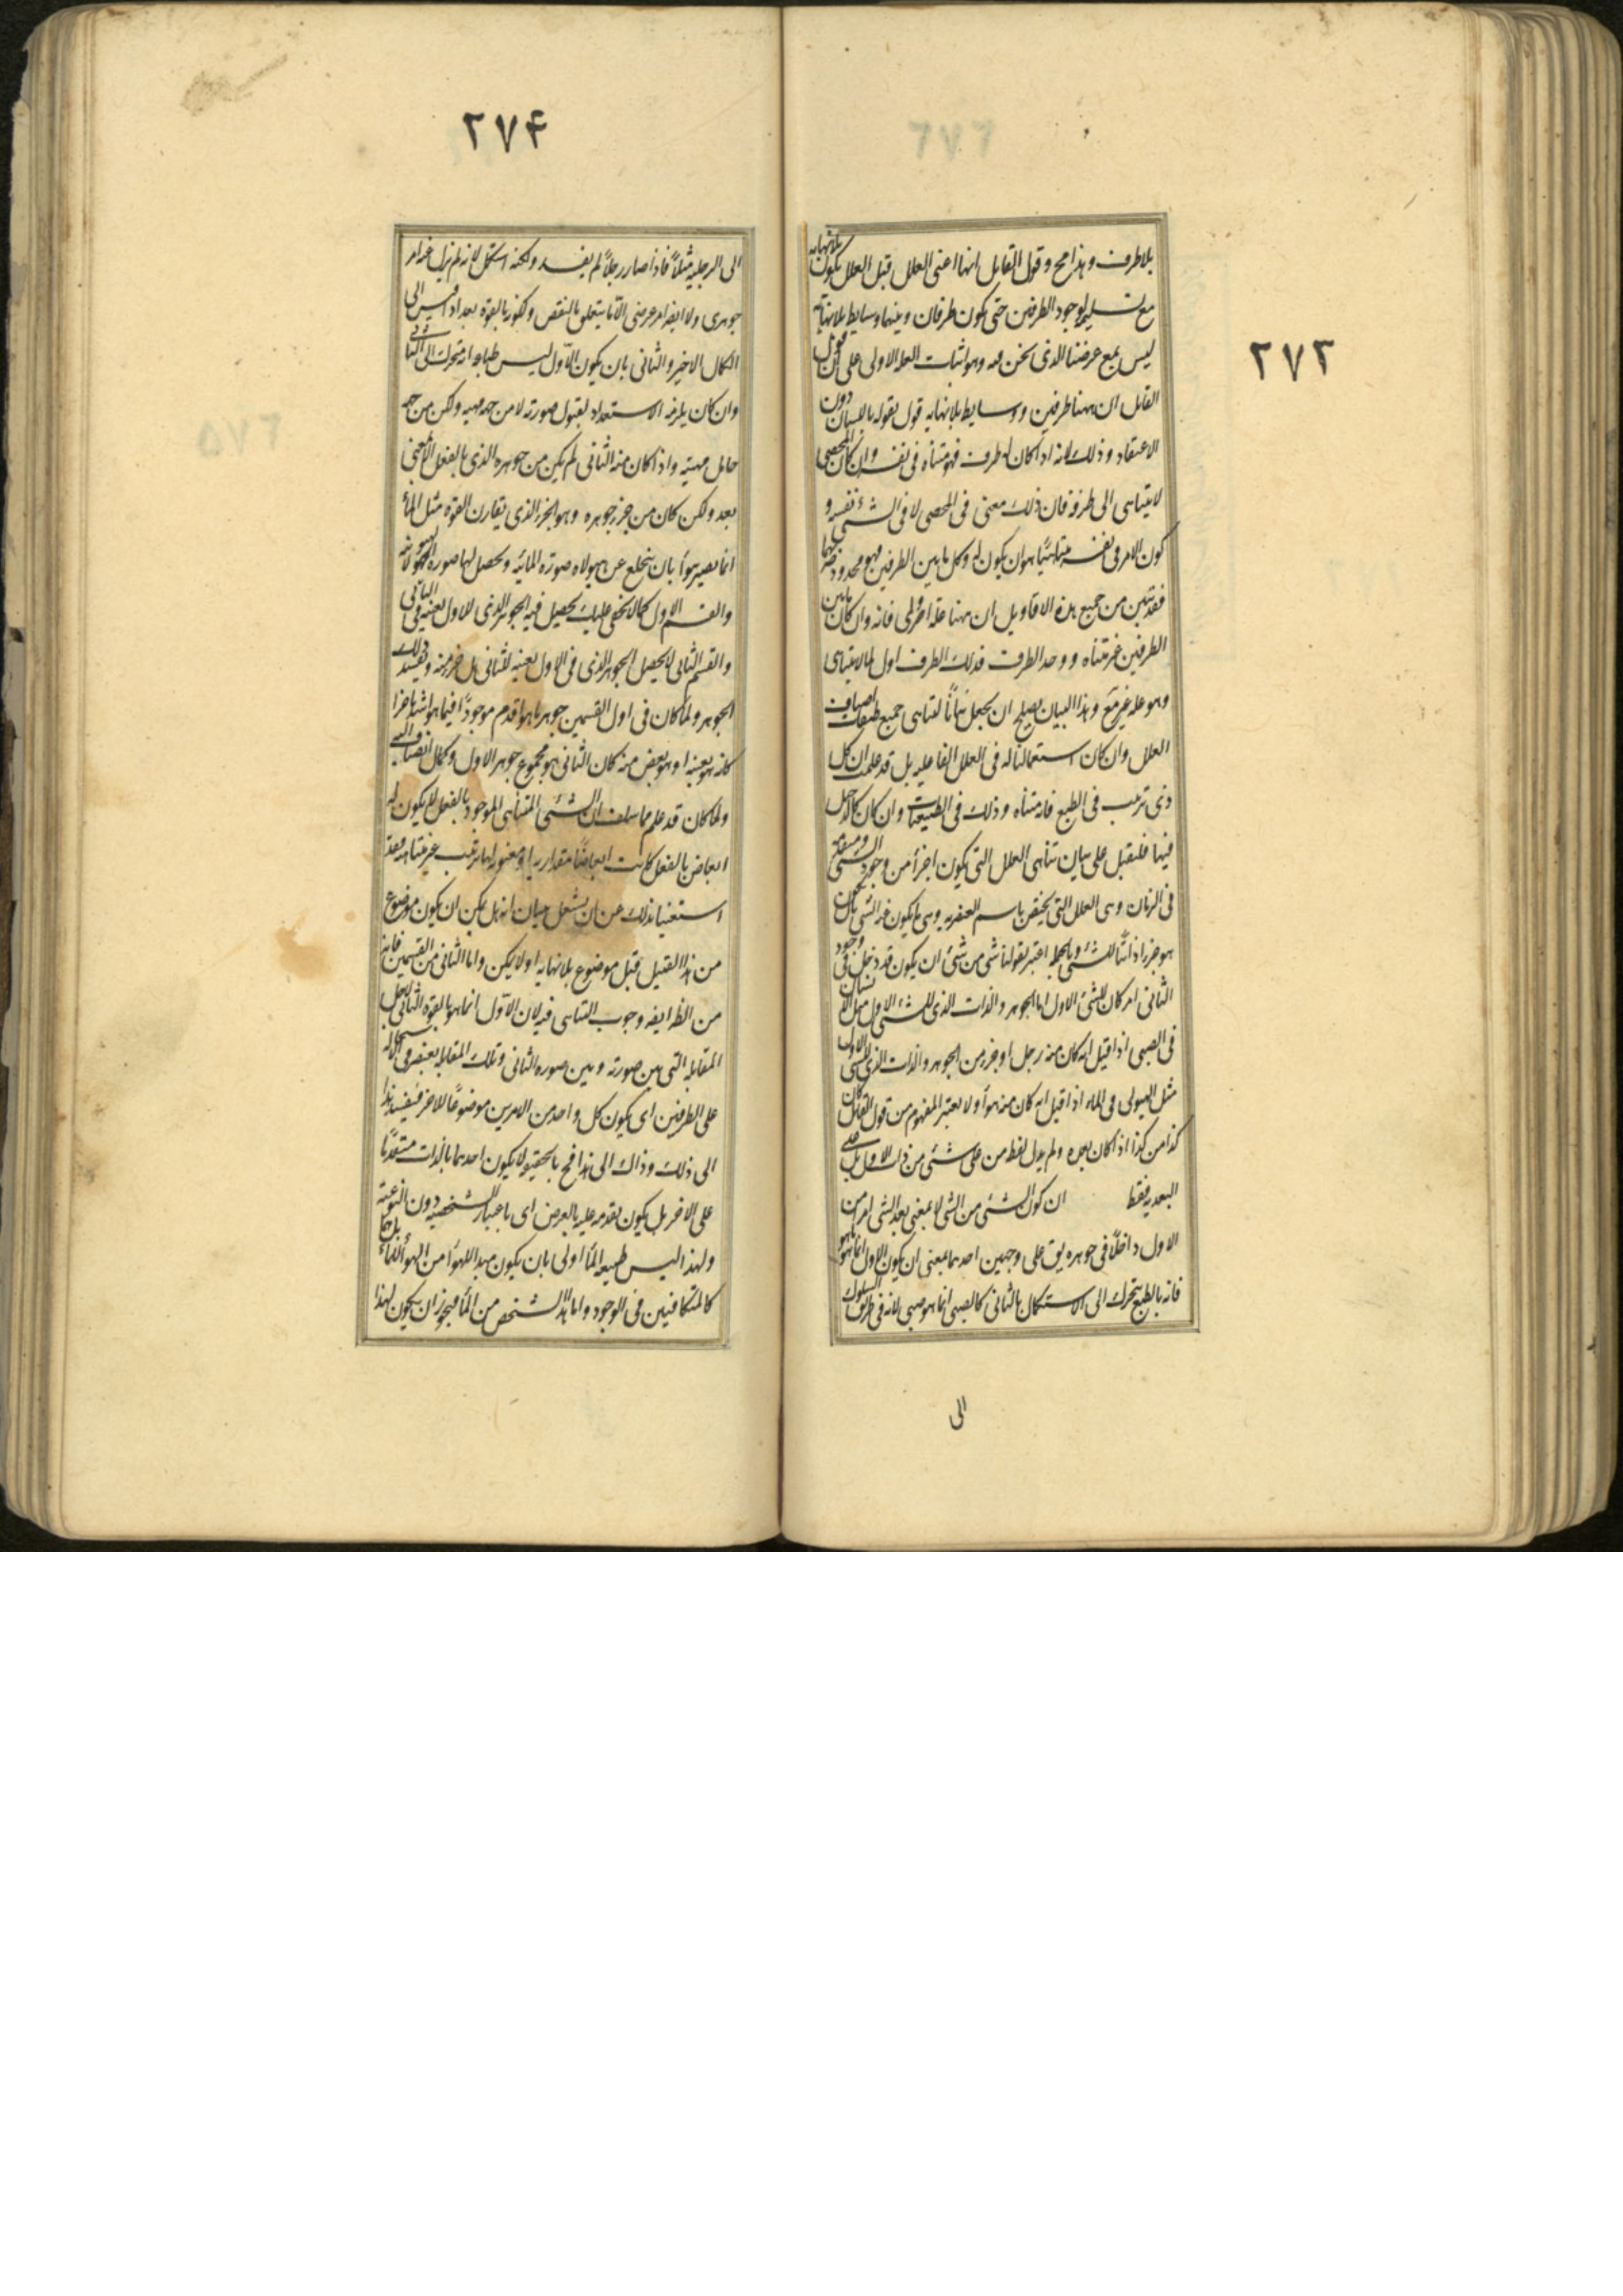 ٢٧٣
بلا طرف وهذا مح وقول القايل انها اعنى العلل قبل العلل يكون بلا نهايه
مع تسليمه لوجود الطرفين حتى يكون طرفان وبينهما وسايط بلا نهاية
ليس يمنع غرضنا الذى نحن فيه وهو اثبات العلة الاولى على ان قول
القايل ان ههنا طرفين ووسايط بلا نهايه قول يقوله باللسان دون
الاعتقاد وذلك لانه اذا كان له طرف فهو متناه فى نفسه وان كان المحصى
لا يتناهى الى طرفه فان ذلك معنى فى المحصى لا فى الشئ نفسه و
كون الامر فى نفسه متناهيا هو ان يكون له وكل ما بين الطرفين فهو محدود بهما ضرورة
فقد تبين من جميع هذه الاقاويل ان ههنا علة اولى فانه وان كان ما بين
الطرفين غير متناه ووجد الطرف فذلك الطرف اول لما لا يتناهى
وهو علة غير مع وهذا البيان يصلح ان يجعل بيانا لتناهى جميع طبقات اصناف
العلل وان كان استعمالنا له فى العلل الفاعليه بل قد علمت ان كل
ذى ترتيب فى الطبع فانه متناه وذلك فى الطبيعيات وان كان كالدخيل
فيها فلنقبل على بيان تناهى العلل التى يكون اجزاء من وجود الشئ ومتقدمة
فى الزمان وهى العلل التى يختص باسم العنصريه وهى ما يكون منه الشئ بان يكون
هو جزءا ذاتيا للشئ وبالجملة اعتبر لقولنا شئ من شئ ان يكون قد دخل فى وجود
الثانى امر كان للشئ الاول اما الجوهر والذات الذى للشئ الاول مثل الانسان
فى الصبى اذا قيل انه كان منه رجل او جزء من الجوهر والذات الذى للشئ الاول
مثل الهيولى فى الماء اذا قيل انه كان منه هواء ولا يعتبر المفهوم من قول القايل كان
كذا من كذا اذا كان بعده ولم يدل لفظ من على شئ من ذات الاول بل على
البعديه فقط ان كون الشئ من الشئ لا بمعنى بعد الشئ امر من
الاول داخلا فى جوهره يق على وجهين احدهما بمعنى ان يكون الاول انما هو ما هو
فانه بالطبع يتحرك الى الاستكمال بالثانى كالصبى انما هو صبى لانه فى طريق السلوك
الى
٢٧۴
الى الرجليه مثلا فاذا صار رجلا لم يفسد ولكنه استكمل لانه لم يزل عنه امر
جوهرى ولا ايضا امر عرضى الا ما يتعلق بالنقص وبكونه بالقوة بعد اذا قيس الى
الكمال الاخير والثانى بان يكون الاول ليس طباعه انه يتحرك الى الثانى
وان كان يلزمه الاستعداد لقبول صورته لا من جهة مهيته ولكن من جهة
حامل مهيته واذا كان منه الثانى لم يكن من جوهره الذى بالفعل الا بمعنى
بعد ولكن كان من جزء جوهره وهو الجزء الذى يقارن القوة مثل الماء
انما يصير هواء بان ينخلع عن هيولاه صورة المائية ويحصل لها صورة الهوائية
والقسم الاول كما لا يخفى عليك يحصل فيه الجوهر الذى للاول بعينه فى الثانى
والقسم الثانى لا يحصل الجوهر الذى فى الاول بعينه للثانى بل جزء منه ويفسد ذلك
الجوهر ولما كان فى اول القسمين جوهر ما هو اقدم موجودا فيما هو اشد تاخرا
كان هو بعينه او هو بعض منه كان الثانى هو مجموع جوهر الاول وكمال انضاف اليه
ولما كان قد علم مما سلف ان الشئ المتناهى الموجود بالفعل لا يكون له
ابعاض بالفعل كانت ابعاضا مقداريه او معنويه لها ترتيب غير متناهيه فقد
استغنينا بذلك عن ان نشتغل ببيان انه هل يمكن ان يكون موضوع
من هذا القبيل قبل موضوع بلا نهايه او لا يمكن واما الثانى من القسمين فانه
من الظ ايضه وجوب التناهى فيه لان الاول انما هو بالقوة الثانى لاجل
المقابلة التى بين صورته وبين صورة الثانى وتلك المقابله يقتصر فى الاستحالة
على الطرفين اى يكون كل واحد من الامرين موضوعا للاخر فيفسد هذا
الى ذلك وذاك الى هذا فح بالحقيقه لا يكون احدهما بالذات متقدما
على الاخر بل يكون تقدمه عليه بالعرض اى باعتبار الشخصيه دون النوعية
ولهذا ليس طبيعة الماء اولى بان يكون مبدا للهواء من الهواء للماء بل هما
كالمتكافيين فى الوجود واما هذا الشخص من الماء فيجوز ان يكون لهذا